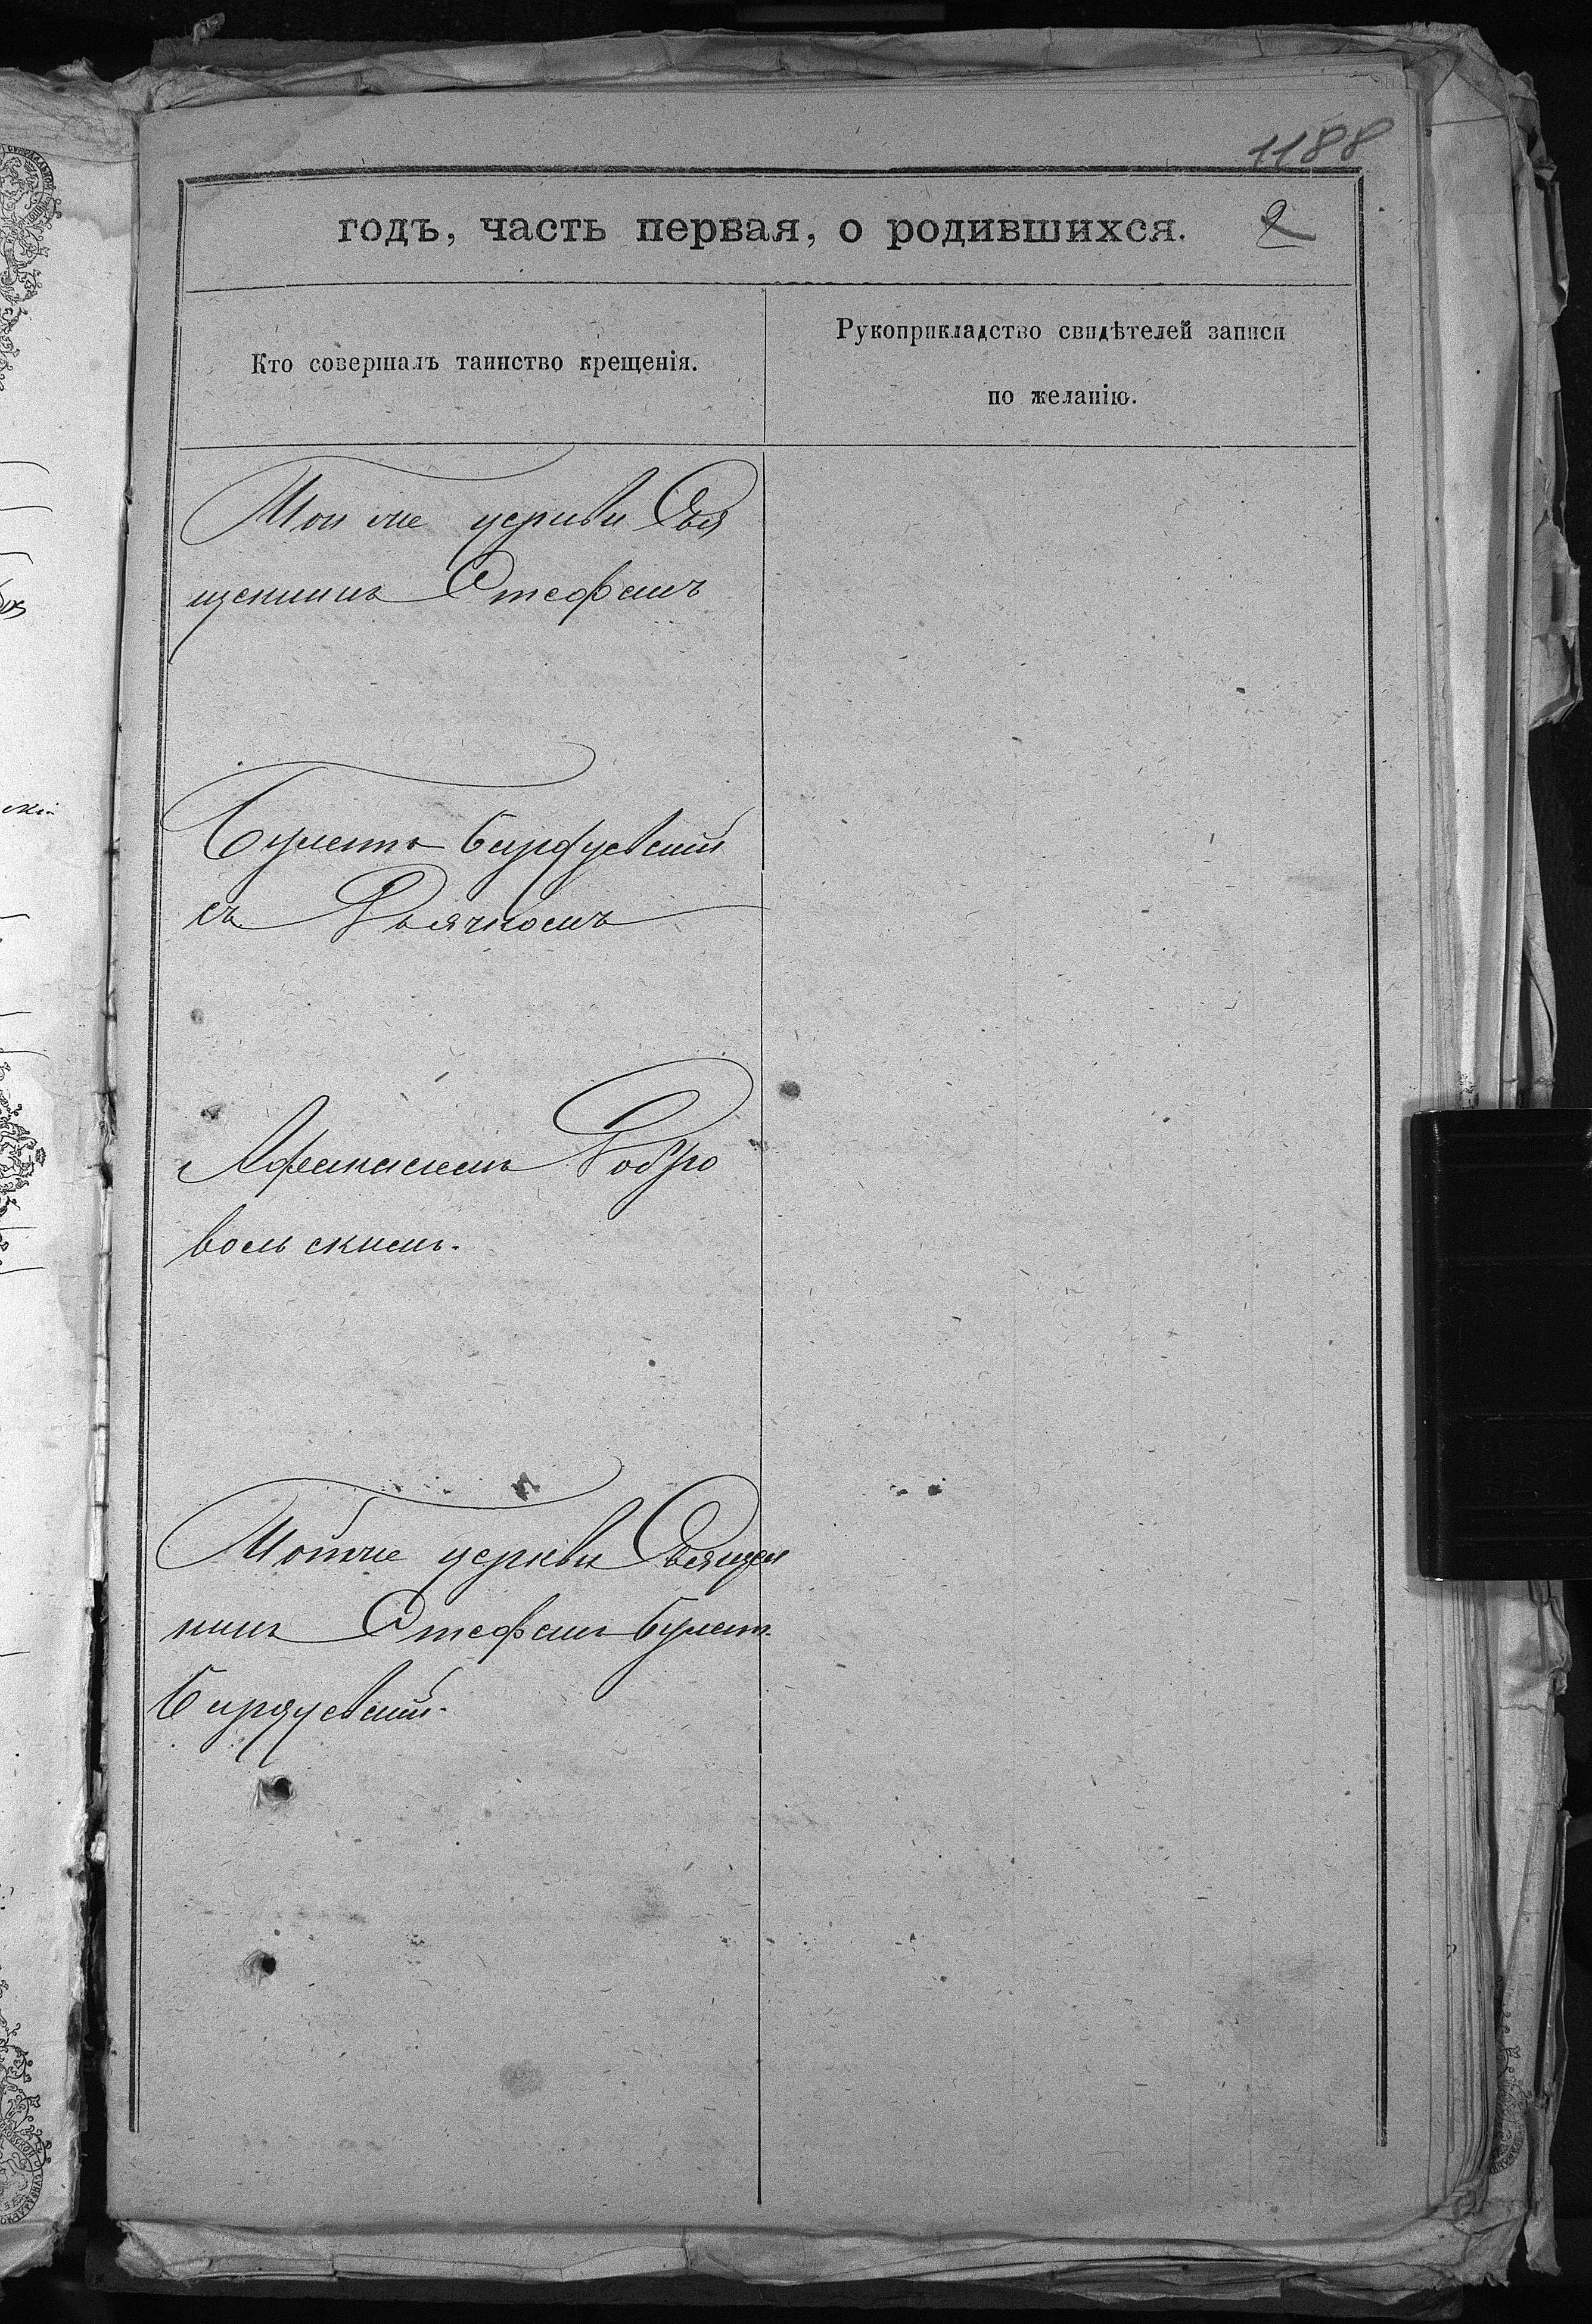 1188
годъ, часть первая, о родившихся. 2
Кто совершалъ таинство крещенія.
Рукоприкладство свидѣтелей записи
по желанію.
Той же церкви Свя
щенникъ Стефанъ
съ Дьячкомъ
Афанасіемъ Добро
вольскимъ.
Той же церкви Священ
никъ Стефанъ